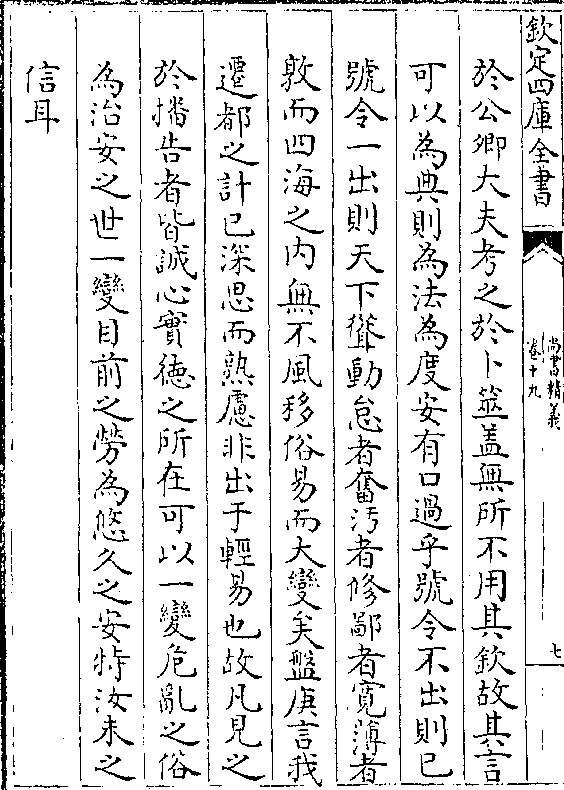 欽定四庫全書
尚書精義
卷十九
七
於公卿大夫考之於卜筮蓋無所不用其欽故其言
可以為典則為法為度安有口過乎號令不出則已
號令一出則天下聳動怠者奮汚者修鄙者寛薄者
敦而四海之内無不風移俗易而大變矣盤庚言我
遷都之計已深思而熟慮非出于輕易也故凡見之
於播告者皆誠心實徳之所在可以一變危亂之俗
為治安之世一變目前之勞為悠久之安特汝未之
信耳